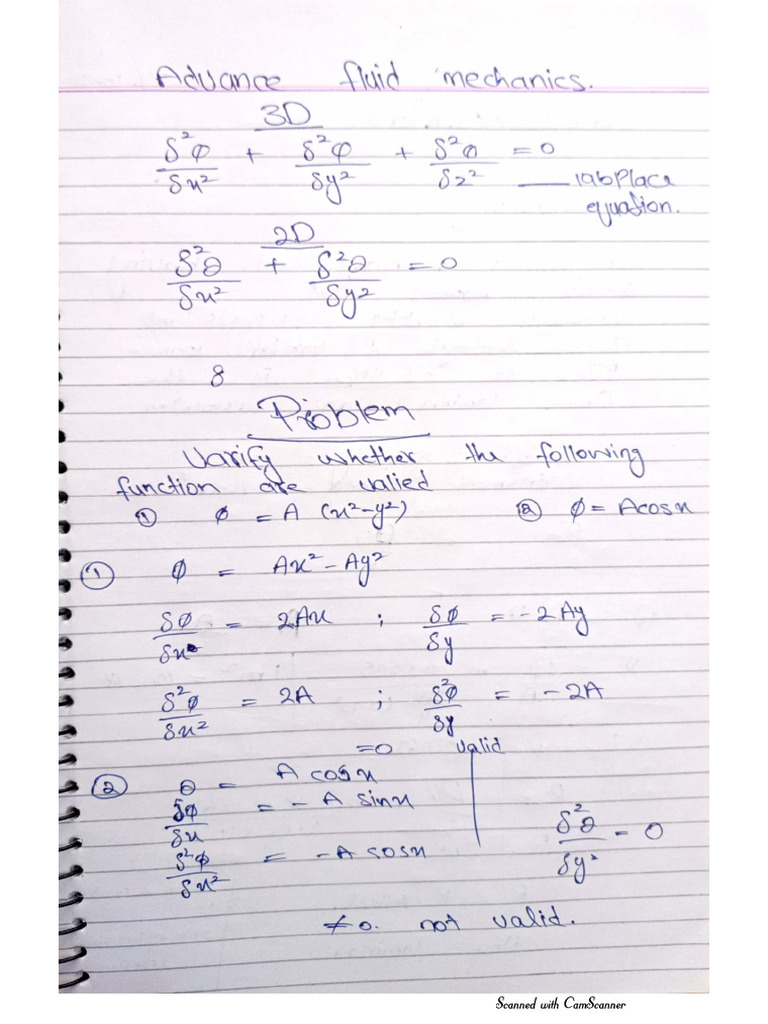 Advance fluid mechanics.
3D
δ²Φ/δx² + δ²Φ/δy² + δ²Φ/δz² = 0
labPlace
equation.
2D
δ²θ/δx² + δ²θ/δy² = 0
8
Problem
Varify whether the following
function are valied
① Ø = A (x²-y²) ② Ø = Acosx
① Ø = Ax² - Ay²
δØ/δx = 2Ax ; δØ/δy = -2Ay
δ²Ø/δx² = 2A ; δ²Ø/δy = -2A
=0 valid
② θ = A cosx
δØ/δx = - A sinx
δ²Ø/δx² = -A cosx
δ²θ/δy² = 0
≠0. not valid.
Scanned with CamScanner